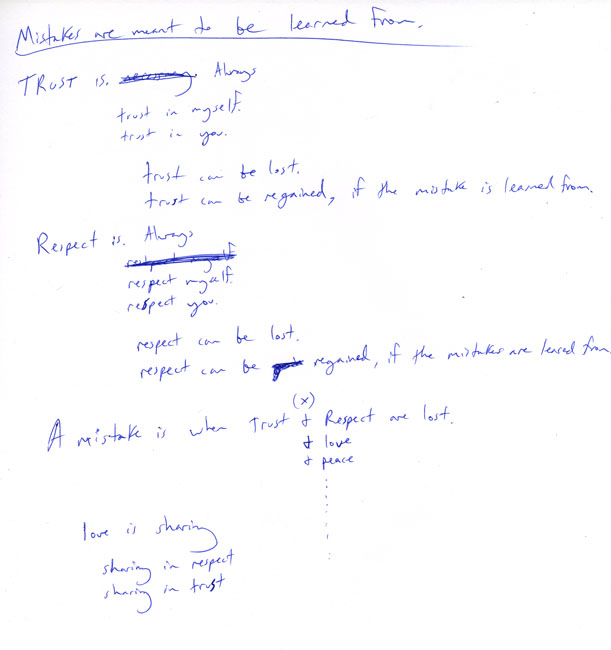 Mistakes are meant to be learned from.
TRUST is. necessary. Always
trust in myself.
trust in you.
trust can be lost.
trust can be regained, if the mistake is learned from.
Respect is. Always
respect myself
respect myself.
respect you.
respect can be lost.
respect can be regained, if the mistakes are leared from
(x)
A mistake is when Trust & Respect are lost.
& love
& peace
love is sharing
sharing in respect
sharing in trust